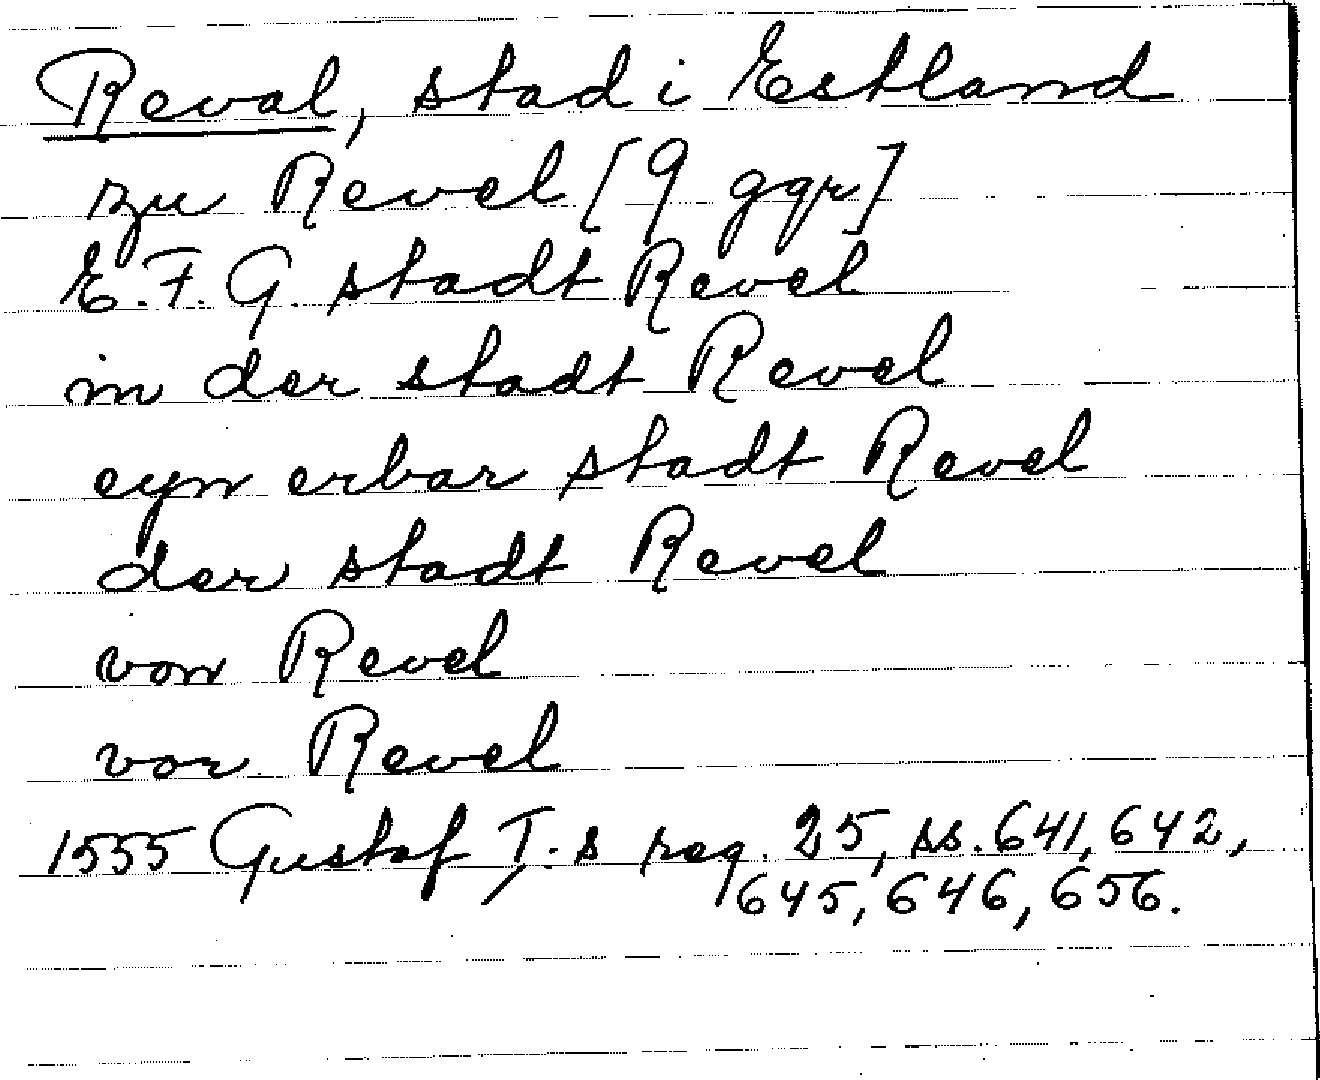 Reval, stad i Estland
zu Revel [9 ggr]
E.F.G. stadt Revel
in der stadt Revel
eyn erbar stadt Revel
der stadt Revel
von Revel
vor Revel
1555 Gustaf I:s reg. 25, ss. 641, 642,
645, 646, 656.